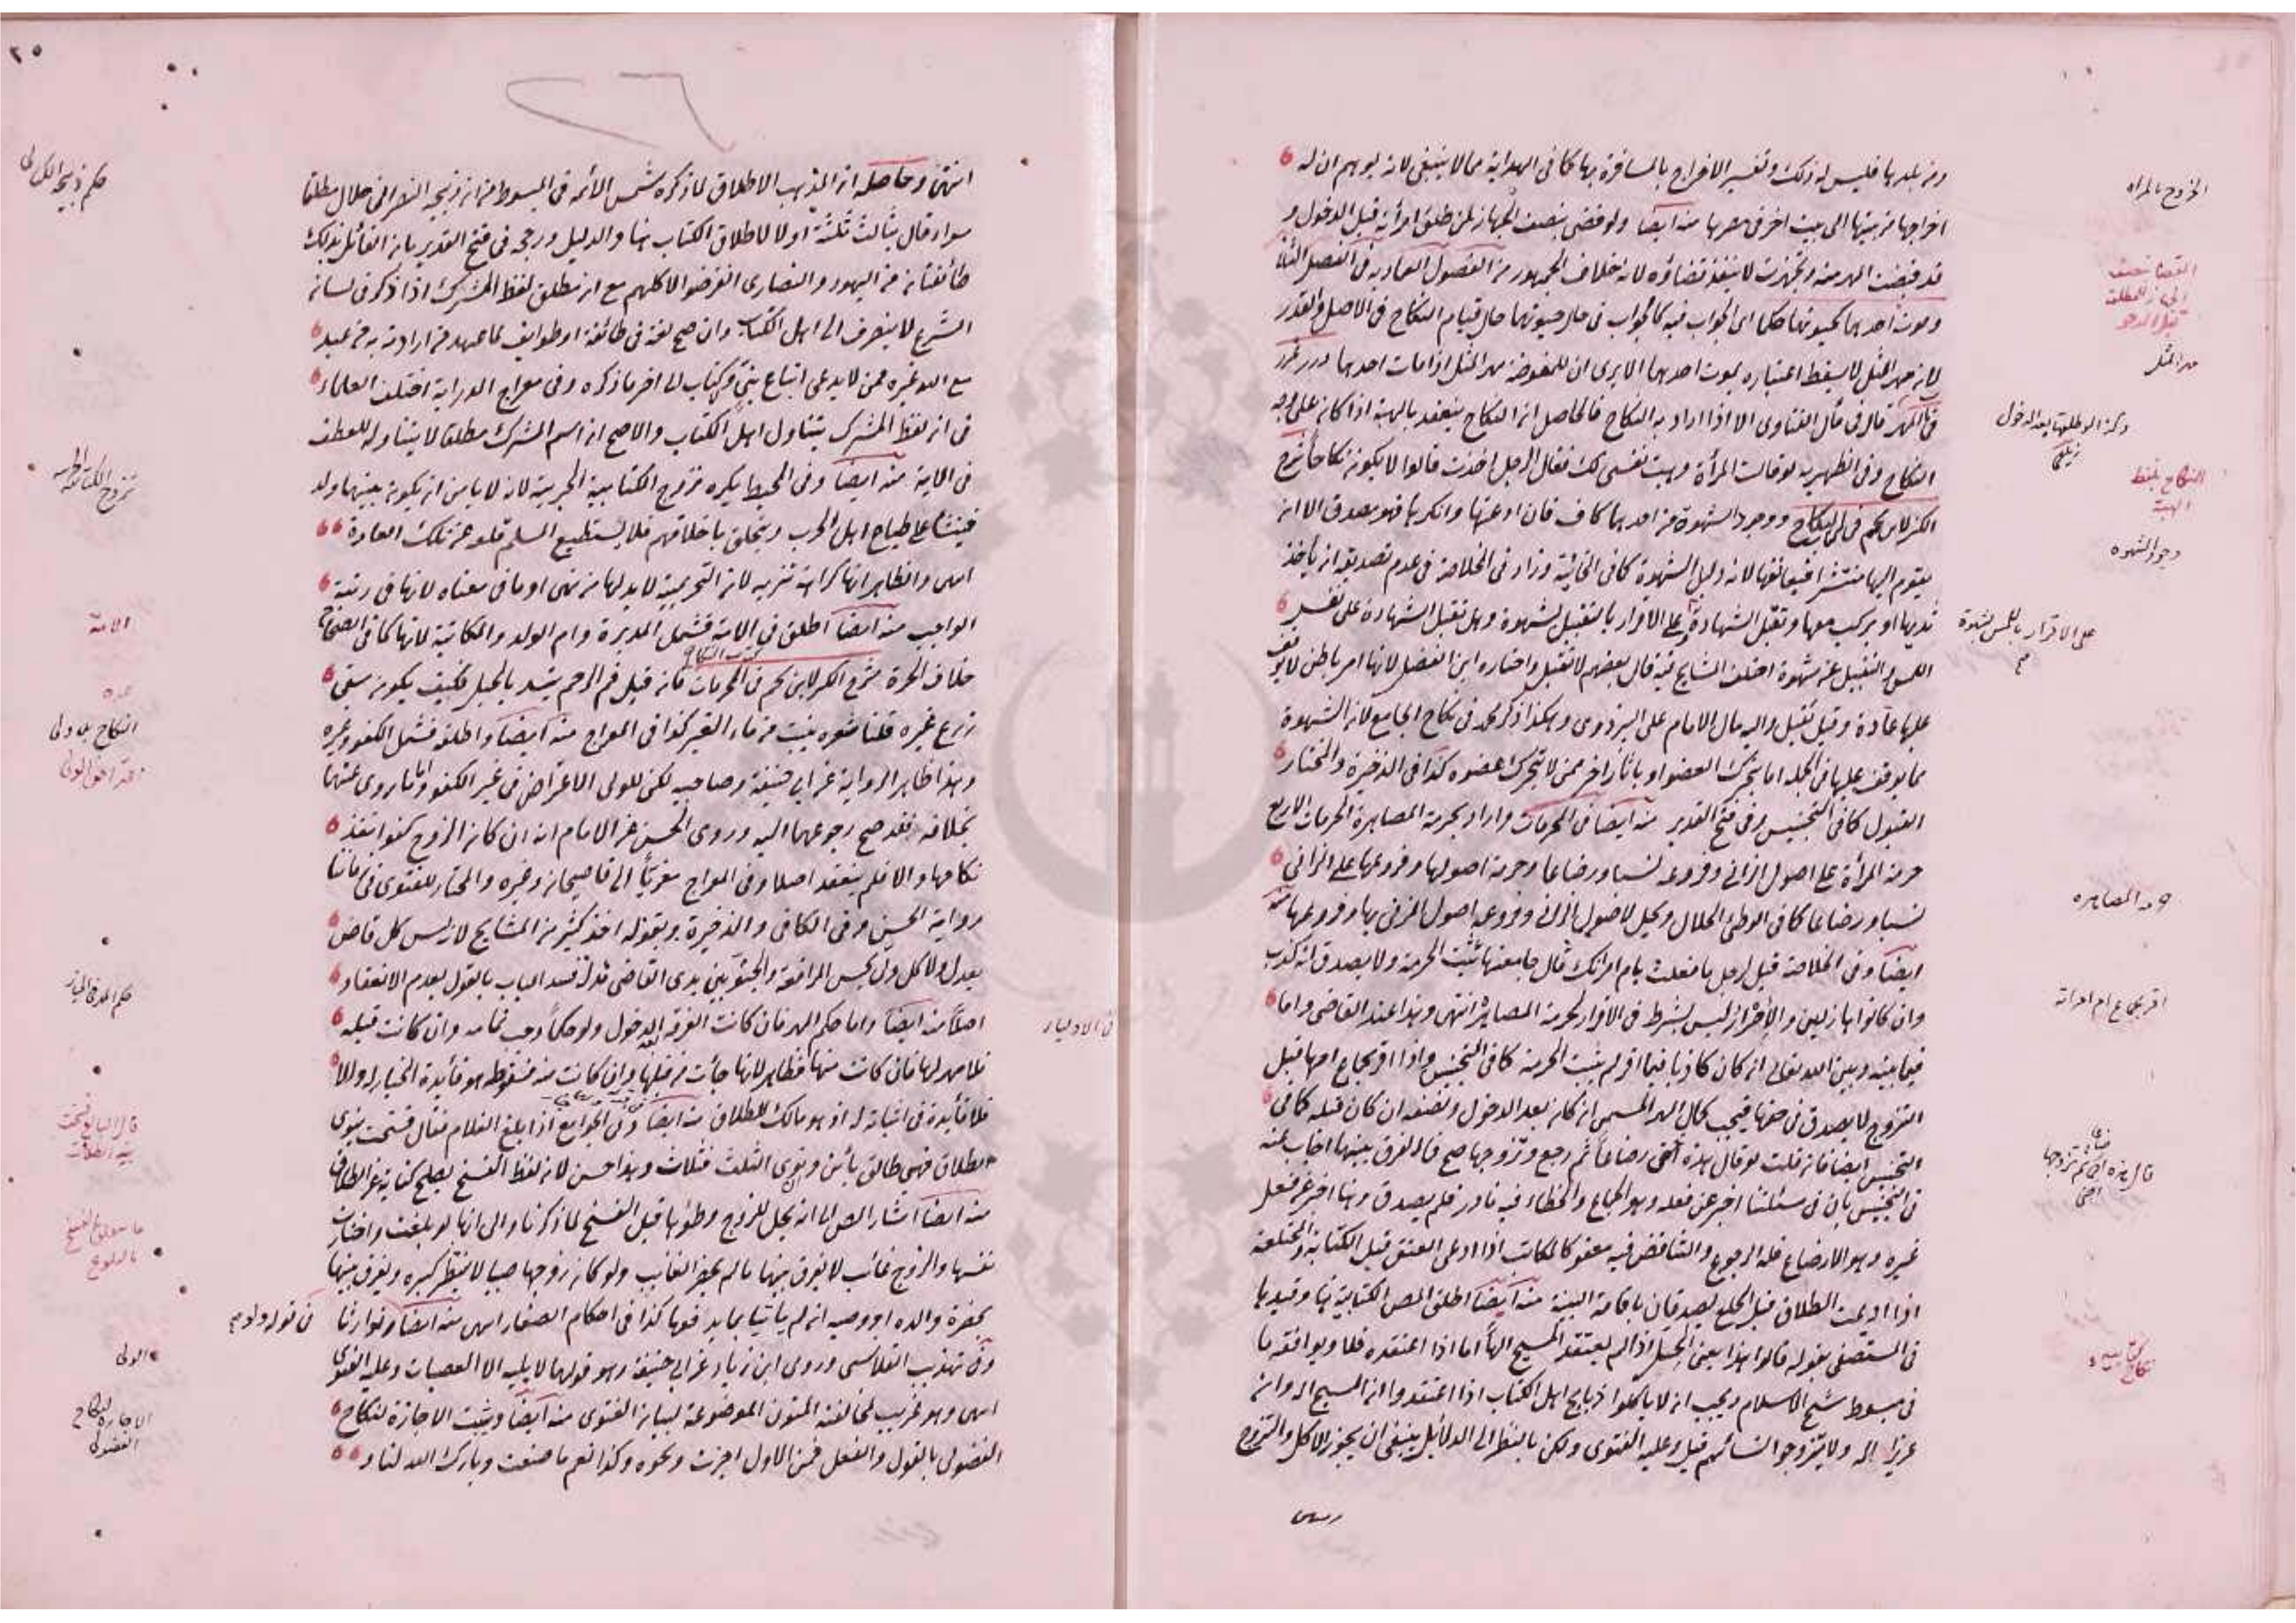 ومن بلد بها فليس له ذلك وتفسير الاخراج بالمسافرة بها كما فى الهداية مما لا ينبغى لانه يوهم ان له
اخراجها من بيتها الى بيت اخر فى مصرها منه ايضا ولو قضى بنصف الجهاز لمن طلق امرأته قبل الدخول و
قد قبضت المهر منه وتجهزت لا ينفذ قضاؤه لانه خلاف الجمهور من الفصول العمادية فى الفصل الثانى
وموت احدهما كحيوتهما حكما اى الجواب فيه كالجواب فى حال حيوتهما حال قيام النكاح فى الاصل والقدر
لان مهر المثل لا يسقط اعتباره بموت احدهما الا يرى ان للمفوضة مهر المثل اذا مات احدهما درر غرر
فى المهر قال فى مآل الفتاوى الا اذا اراد به النكاح فالحاصل ان النكاح ينعقد بالهبة اذا كان على وجه
النكاح وفى الظهيرية لو قالت المرأة وهبت نفسى لك فقال الرجل اخذت قالوا لا يكون نكاحا شرح
الكنز لابن نجيم فى النكاح ووجود الشهوة من احدهما كاف فان ادعتها وانكرها فهو مصدق الا ان
يقوم اليها منتشرا فيعانقها لانه دليل الشهوة كما فى الخانية وزاد فى الخلاصة فى عدم تصديقه ان يأخذ
ثديها او يركب معها وتقبل الشهادة على الاقرار بالتقبيل بشهوة وهل تقبل الشهادة على نفس
اللمس والتقبيل عن شهوة اختلف المشايخ فيه قال بعضهم لا تقبل واختاره ابن الفضل لانها امر باطن لا يوقف
عليها عادة وقيل تقبل واليه مال الامام على البزدوى وهكذا ذكر محمد فى نكاح الجامع لان الشهوة
مما يوقف عليها فى الجملة اما بتحرك العضو او باثار اخر ممن لا يتحرك عضوه كذا فى الذخيرة والمختار
القبول كما فى التجنيس وفى فتح القدير منه ايضا فى المحرمات واراد بحرمة المصاهرة الحرمات الاربع
حرمة المرأة على اصول الزانى وفروعه نسبا ورضاعا وحرمة اصولها وفروعها على الزانى
نسبا ورضاعا كما فى الوطئ الحلال ويحل لاصول الزانى وفروعه اصول المزنى بها وفروعها منه
ايضا وفى الخلاصة قيل لرجل ما فعلت بام امرأتك قال جامعتها تثبت الحرمة ولا يصدق انه كذب
وان كانوا هازلين والاصرار ليس بشرط فى الاقرار لحرمة المصاهرة انتهى وهذا عند القاضى واما
فيما بينه وبين الله تعالى ان كان كاذبا فيما اقر لم يثبت الحرمة كما فى التجنيس واذا اقر بجماع امها قبل
التزوج لا يصدق فى حقها فيجب كمال المهر المسمى ان كان بعد الدخول ونصفه ان كان قبله كما فى
التجنيس ايضا فان قلت لو قال هذه اختى رضاعا ثم رجع وتزوجها صح فما الفرق بينهما اجاب عنه
فى التجنيس بان فى مسئلتنا اخبر عن فعله وهو الجماع والخطاء فيه نادر فلم يصدق وهنا اخبر عن فعل
غيره وهو الارضاع فله الرجوع والتناقض فيه معفو كالمكاتب اذا ادعى العتق قبل الكتابة والمختلعة
اذا ادعت الطلاق قبل الخلع يصدقان باقامة البينة منه ايضا اطلق المص الكتابية هنا وقيدها
فى المستصفى بقوله قالوا هذا يعنى الحل اذا لم يعتقد المسيح الها اما اذا اعتقده فلا ويوافقه ما
فى مبسوط شيخ الاسلام ويجب ان لا يأكلوا ذبايح اهل الكتاب اذا اعتقدوا ان المسيح اله وان
عزيزا اله ولا يتزوجوا نسائهم قيل وعليه الفتوى ولكن بالنظر الى الدلائل ينبغى ان يجوز الاكل والتزوج
الخروج بالمراه
القضا بنصف
الجهاز للمطلقه
قبل الدخول
مهر المثل
النكاح بلفظ
الهبة
وجود الشهوه
على الاقرار باللمس بشهوة
اقر بجماع ام امراته
انتهى وحاصله ان المذهب الاطلاق لما ذكره شمس الائمه فى المبسوط من ان ذبيحة النصرانى حلال مطلقا
سواء قال بثالث ثلثة او لا لاطلاق الكتاب هنا والدليل ورجحه فى فتح القدير بان القائل بذلك
طائفتان من اليهود والنصارى انقرضوا لا كلهم مع ان مطلق لفظ المشرك اذا ذكر فى لسان
الشرع لا ينصرف الى اهل الكتاب وان صح لغة فى طائفة او طوايف لما عهد من ارادته به من عبد
مع الله غيره ممن لا يدعى اتباع نبى وكتاب الى اخر ما ذكره وفى معراج الدراية اختلف العلماء
فى ان لفظ المشرك يتناول اهل الكتاب والاصح ان اسم المشرك مطلقا لا يتناوله للعطف
فى الاية منه ايضا وفى المحيط يكره تزوج الكتابية الحربية لانه لا يأمن ان يكون بينهما ولد
فينشأ على طباع اهل الحرب ويتخلق باخلاقهم فلا يستطيع المسلم قلعه عن تلك العادة
انتهى والظاهر انها كراهة تنزيه لان التحريمية لا بد لها من نهى او ما فى معناه لانها فى رتبة
الواجب منه ايضا اطلق فى الامة فشمل المدبرة وام الولد والمكاتبة
خلاف الحرة شرح الكنز لابن نجيم فى المحرمات فان قيل فم الرحم ينسد بالحبل فكيف يكون سقى
زرع غيره قلنا شعره ينبت من ماء الغير كذا فى المعراج منه ايضا واطلقه فشمل الكفو وغيره
وهذا ظاهر الرواية عن ابى حنيفة وصاحبيه لكن للولى الاعتراض فى غير الكفو وما روى عنهما
بخلافه فقد صح رجوعهما اليه وروى الحسن عن الامام انه ان كان الزوج كفوا نفذ
نكاحها والا فلم ينعقد اصلا وفى المعراج معزيا الى قاضيخان وغيره والمختار للفتوى فى زماننا
رواية الحسن وفى الكافى والذخيرة وبقوله اخذ كثير من المشايخ لانه ليس كل قاض
يعدل ولا كل ولى يحسن المرافعة والجثو بين يدى القاضى مذلة فسد الباب بالقول بعدم الانعقاد
اصلا منه ايضا واما حكم المهر فان كانت الفرقة بعد الدخول ولو حكما وجب تمامه وان كانت قبله
فلا مهر لها فان كانت منها فظاهر لانها جأت من قبلها وان كانت منه فسقوطه هو فائدة الخيار له والا
فلا فائدة فى اثباته له اذ هو مالك للطلاق منه ايضا وفى الجوامع اذا بلغ الغلام فقال فسخت ينوى
الطلاق فهى طالق بائن ونوى الثلث فثلاث وهذا حسن لان لفظ الفسخ يصلح كناية عن الطلاق
منه ايضا اشار المص الى انه يحل للزوج وطئها قبل الفسخ لما ذكرنا والى انها لو بلغت واختارت
نفسها والزوج غائب لا يفرق بينهما ما لم يحضر الغائب ولو كان زوجها صبيا لا ينتظر كبره ويفرق بينهما
بحضرة والده او وصيه ان لم يأتيا بما يدفعها كذا فى احكام الصغار انتهى منه ايضا
وفى تهذيب القلانسى وروى ابن زياد عن ابى حنيفة وهو قولهما لا يليه الا العصبات وعليه الفتوى
انتهى وهو غريب لمخالفته المتون الموضوعة لبيان الفتوى منه ايضا ويثبت الاجازة لنكاح
الفضولى بالقول والفعل فمن الاول اجزت ونحوه وكذا نعم ما صنعت وبارك الله لنا و
الامة
النكاح بلا ولى
الولى
الاجازة لنكاح
الفضولى
٢٥